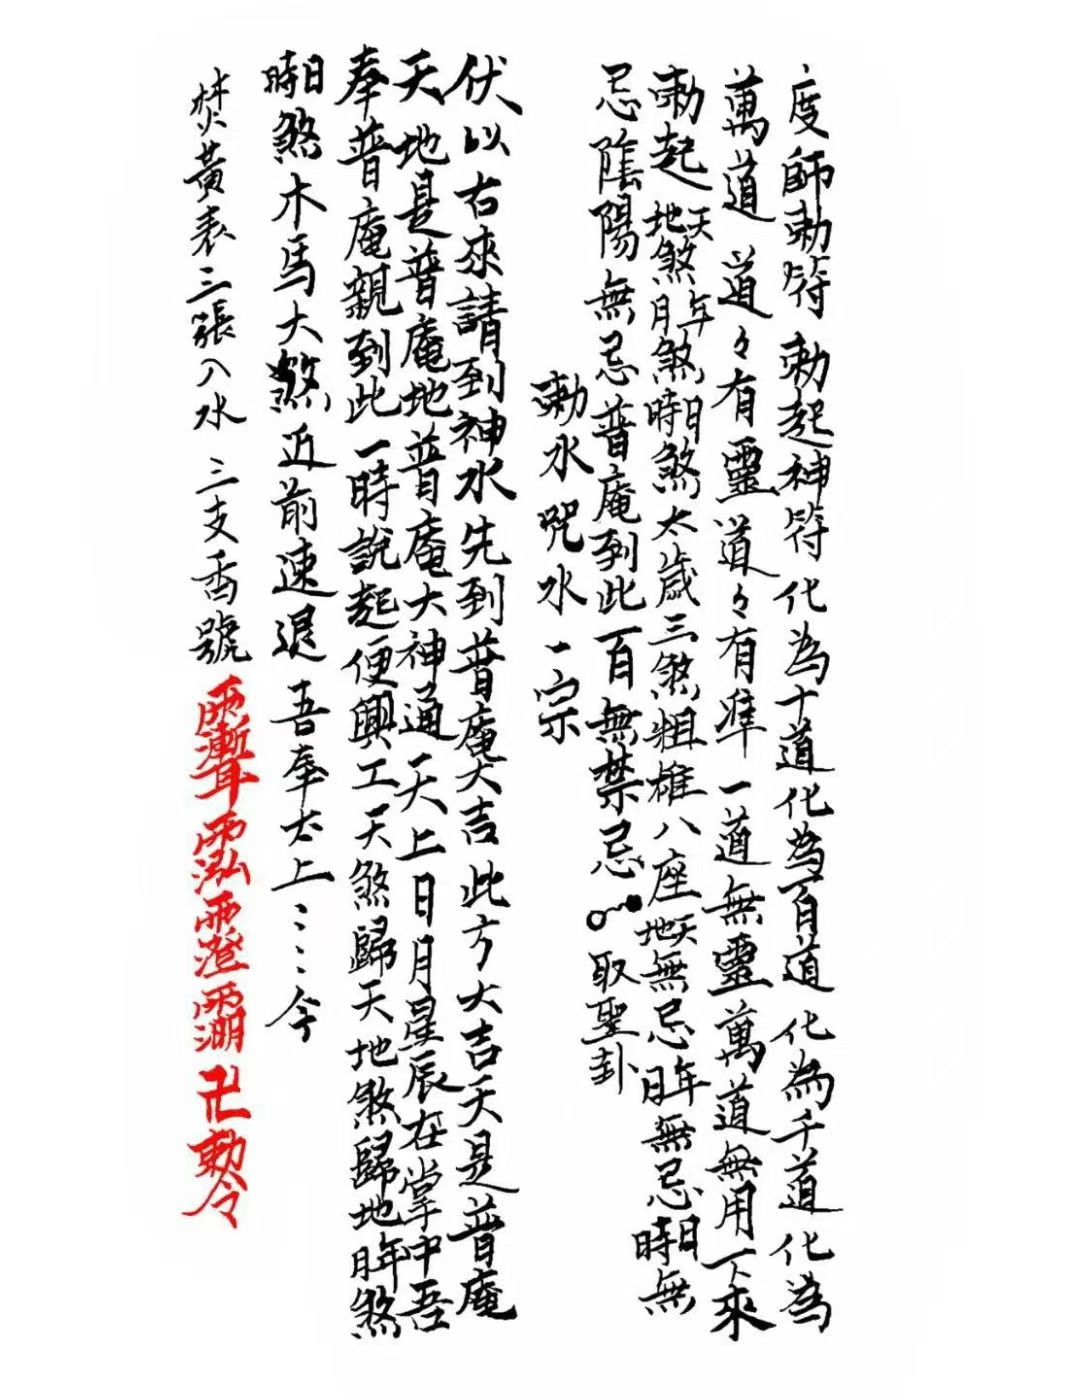 度師勅符勅起神符化為十道化為百道化為千道化為
萬道道々有靈道々有準一道無靈萬道無用下來
勅起天地煞年月煞日時煞太歲三煞粗雄八座天地無忌年月無忌日時無
忌陰陽無忌普庵到此百無禁忌取聖卦
勅水咒水一宗
伏以右來請到神水先到普庵大吉此方大吉天是普庵
天地是普庵地普庵大神通天上日月星辰在掌中吾
奉普庵親到此一時說起便興工天煞歸天地煞歸地年月煞
日時煞木馬大煞近前速退吾奉太上:::令
焚黃表三張入水三支香號卍勅令